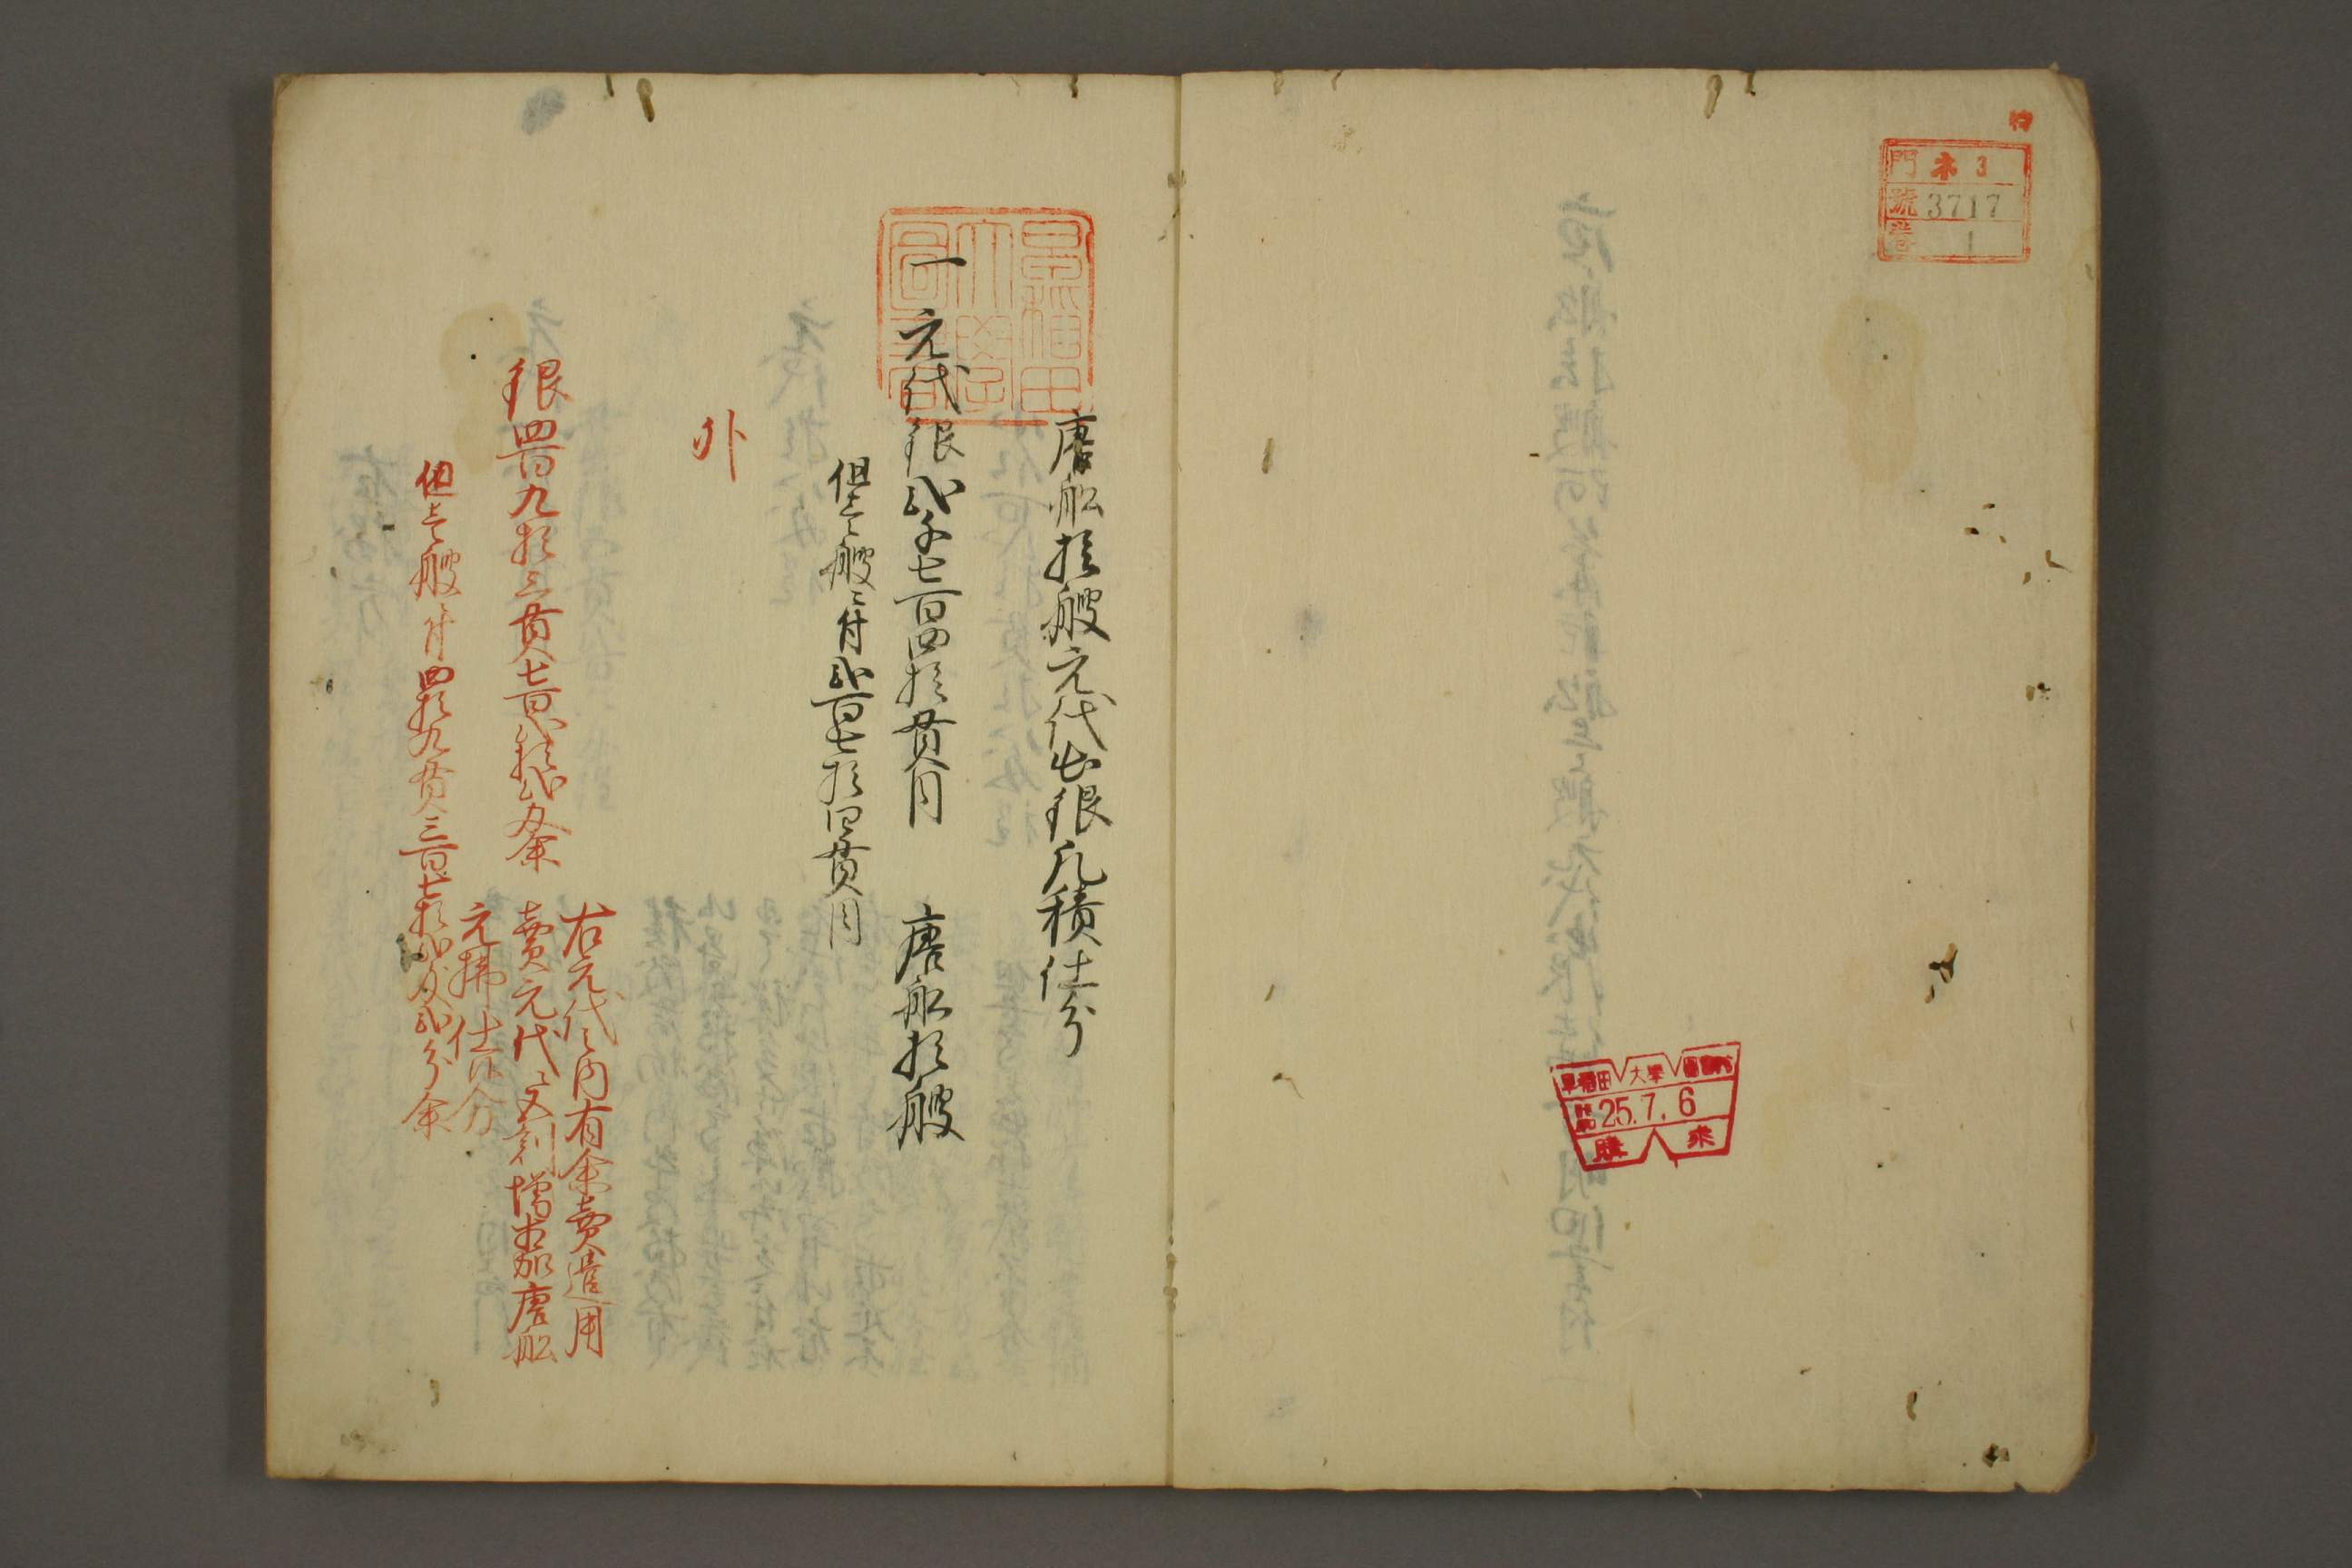 特
門 ネ 3
號 3717
巻 1
早稲田大學圖書館
25.7.6
購 求
早稲田大學圖書
唐船拾艘元代出銀凡積仕分
一 元代銀弐千七百四拾貫目 唐船拾艘
但壱艘ニ付弐百七拾四貫目
外
銀四百九拾三貫七百弐拾弐匁余
右元代之内有余売遣用
売元代ニ又割増相加唐船
元払仕候分
但壱艘ニ付四拾九貫三百七拾弐匁弐分余